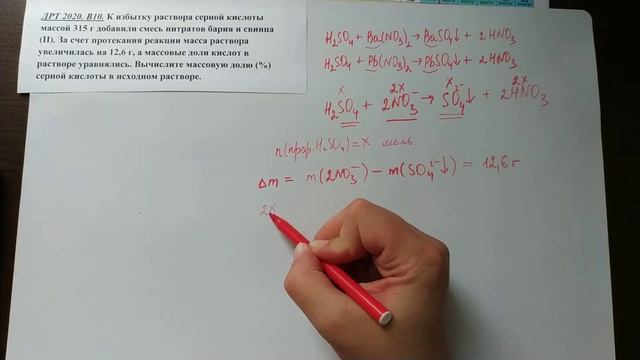 ДРТ 2020. В10. К избытку раствора серной кислоты
массой 315 г добавили смесь нитратов бария и свинца
(II). За счет протекания реакции масса раствора
увеличилась на 12,6 г, а массовые доли кислот в
растворе уравнялись. Вычислите массовую долю (%)
серной кислоты в исходном растворе.
H₂SO₄ + Ba(NO₃)₂ → BaSO₄↓ + 2HNO₃
H₂SO₄ + Pb(NO₃)₂ → PbSO₄↓ + 2HNO₃
x 2x x 2x
H₂SO₄ + 2NO₃⁻ → SO₄²⁻↓ + 2HNO₃
n(прор. H₂SO₄) = x моль
Δm = m(2NO₃⁻) − m(SO₄²⁻↓) = 12,6 г
2x